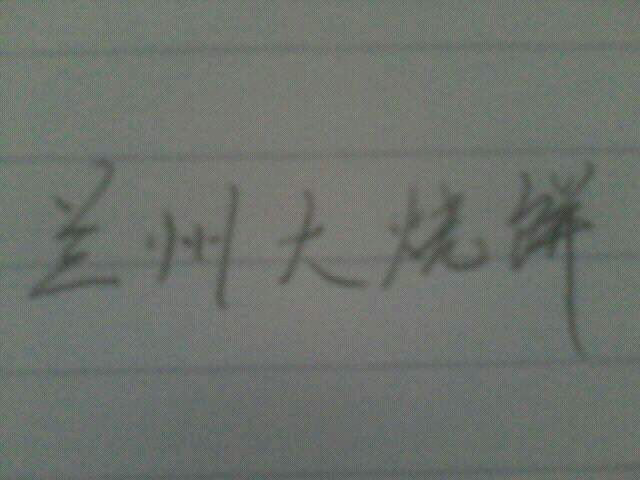 兰州大烧饼